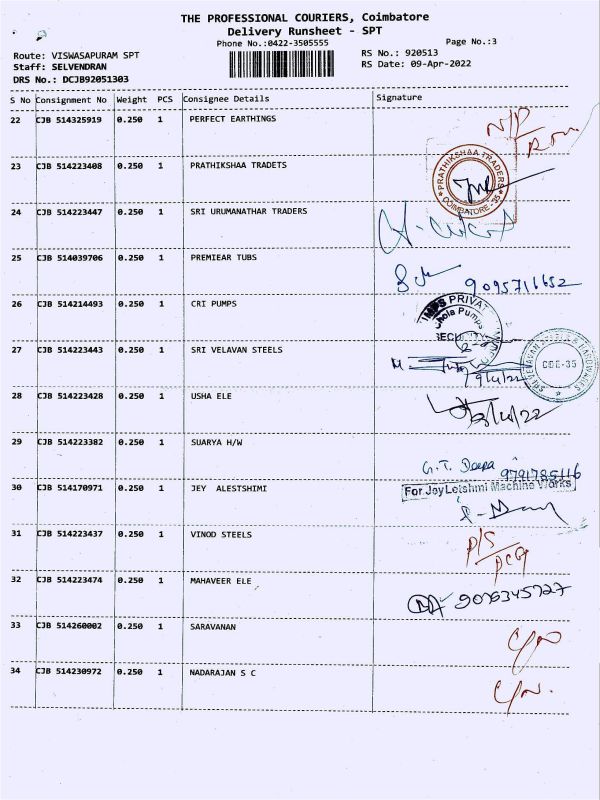 THE PROFESSIONAL COURIERS, Coimbatore
Delivery Runsheet - SPT
Phone No.:0422-3505555
Page No.:3
Route: VISWASAPURAM SPT
RS No.: 920513
Staff: SELVENDRAN
RS Date: 09-Apr-2022
DRS No.: DCJB92051303
S No Consignment No Weight PCS Consignee Details Signature
22 CJB 514325919 0.250 1 PERFECT EARTHINGS
N/P
23 CJB 514223408 0.250 1 PRATHIKSHAA TRADETS
PRATHIKSHAA TRADERS
COIMBATORE - 35
24 CJB 514223447 0.250 1 SRI URUMANATHAR TRADERS
25 CJB 514039706 0.250 1 PREMIEAR TUBS
9095711652
26 CJB 514214493 0.250 1 CRI PUMPS
Chola Pumps
27 CJB 514223443 0.250 1 SRI VELAVAN STEELS
CBE-35
28 CJB 514223428 0.250 1 USHA ELE
29 CJB 514223382 0.250 1 SUARYA H/W
G.T. Deepa 9791785116
30 CJB 514170971 0.250 1 JEY ALESTSHIMI
For Jey Letshmi Machine Works
31 CJB 514223437 0.250 1 VINOD STEELS
P/S
32 CJB 514223474 0.250 1 MAHAVEER ELE
9076345727
33 CJB 514260002 0.250 1 SARAVANAN
34 CJB 514230972 0.250 1 NADARAJAN S C